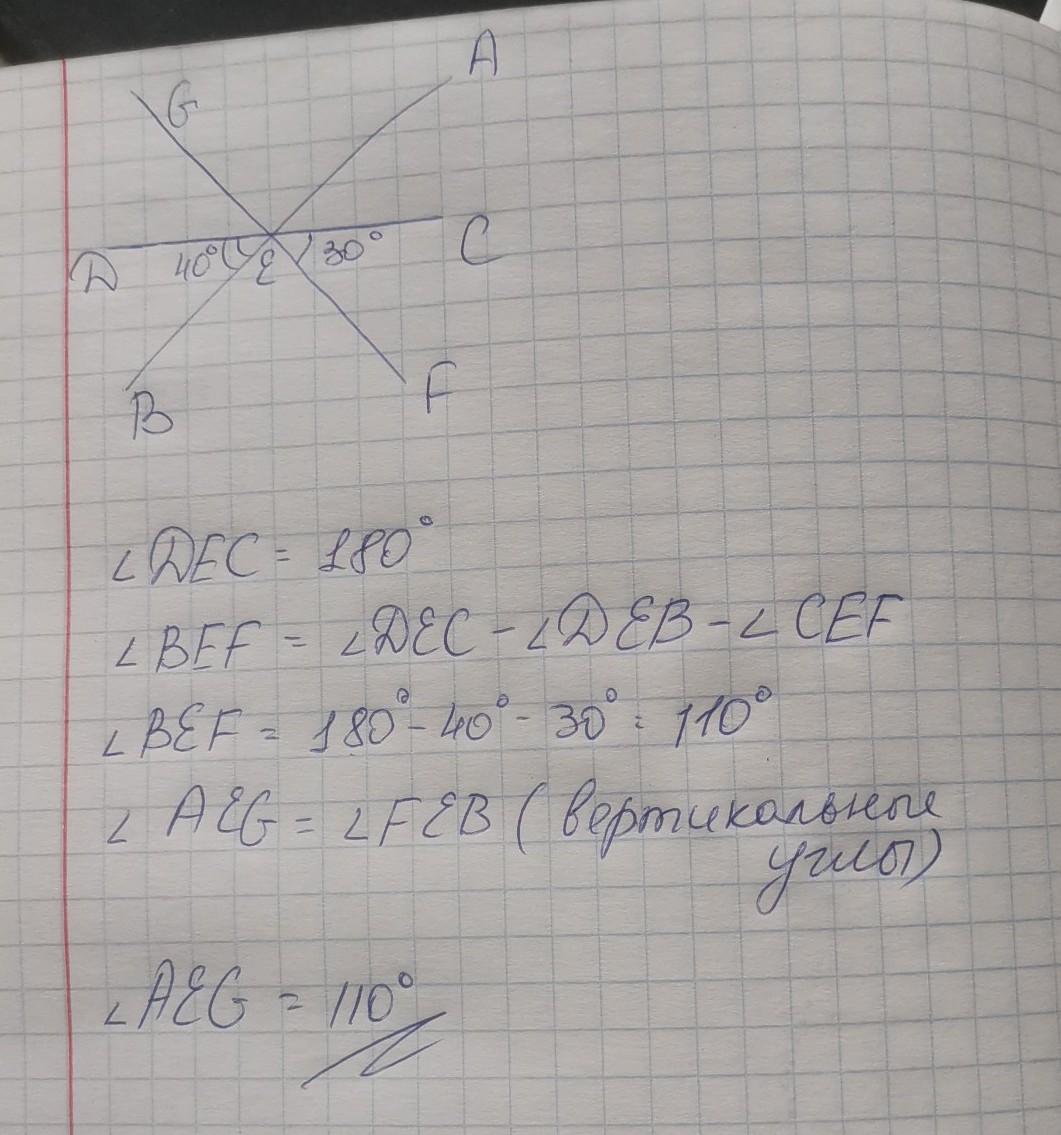 G
A
D
40°
E
30°
C
B
F
∠DEC = 180°
∠BEF = ∠DEC - ∠DEB - ∠CEF
∠BEF = 180° - 40° - 30° = 110°
∠AEG = ∠FEB (вертикальные
углы)
∠AEG = 110°